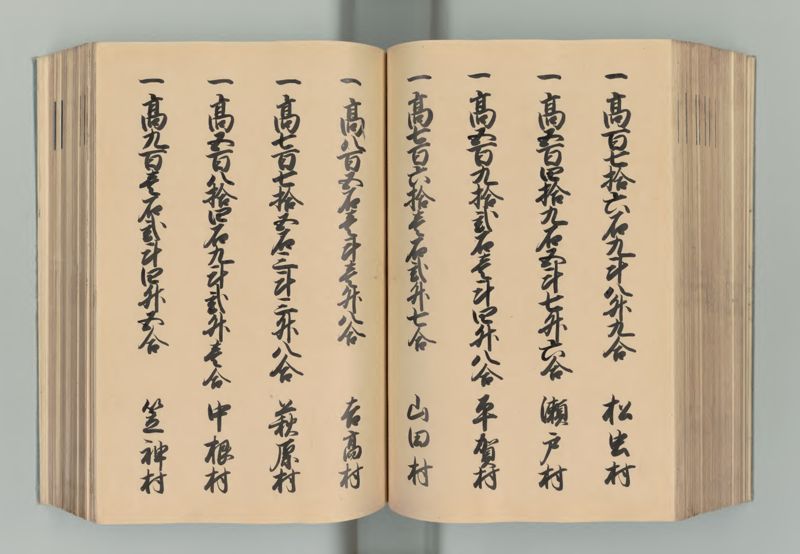 一 高百七拾六石九斗八升九合 松虫村
一 高五百四拾九石五斗七升六合 瀬戸村
一 高五百九拾弐石壱斗四升八合 平賀村
一 高七百六拾壱石弐升七合 山田村
一 高八百五石壱斗壱升八合 吉高村
一 高七百七拾五石三斗三升八合 萩原村
一 高五百八拾四石九斗弐升壱合 中根村
一 高九百壱石弐斗四升五合 笠神村